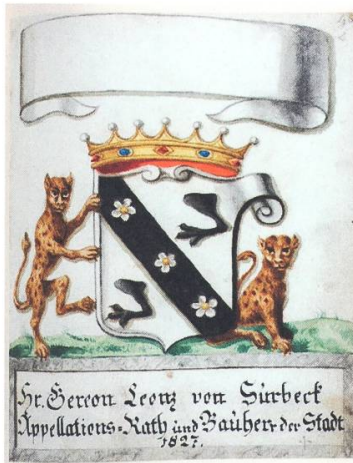 Hr. Gereon Leonz von Sùrbeck
Appellations-Rath ùnd Baùherr der Stadt
1827.